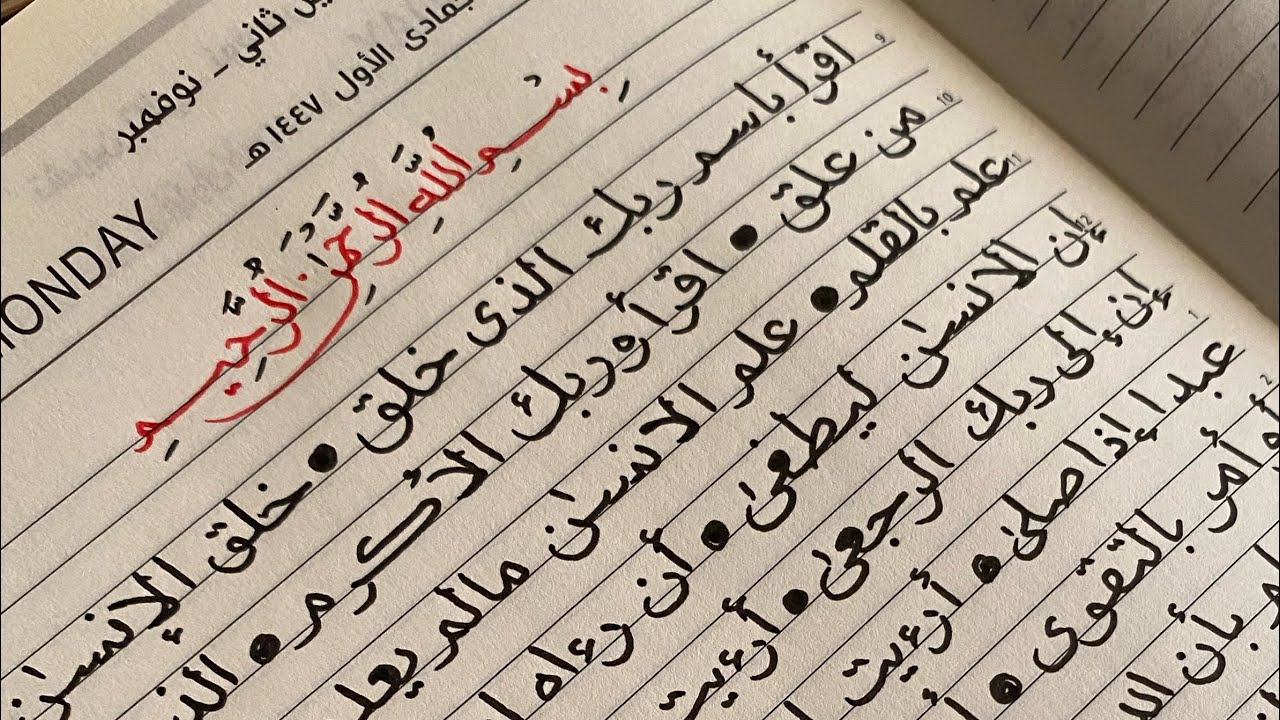 ثاني - نوفمبر
جمادى الأول ١٤٤٧ هـ
MONDAY
بِسْمِ اللَّهِ الرَّحْمَٰنِ الرَّحِيمِ
9
اقرأ باسم ربك الذى خلق ● خلق الإنسٰن
10
من علق ● اقرأ وربك الأكرم ●
11
علم بالقلم ● علم الانسٰن مالم
12
إن الانسٰن ليطغىٰ ● أن رءاه
إن إلى ربك الرجعىٰ ● أرءيت
1
عبدا إذا صلىٰ ● أرءيت
2
أمر بالتقوى ●
بأن